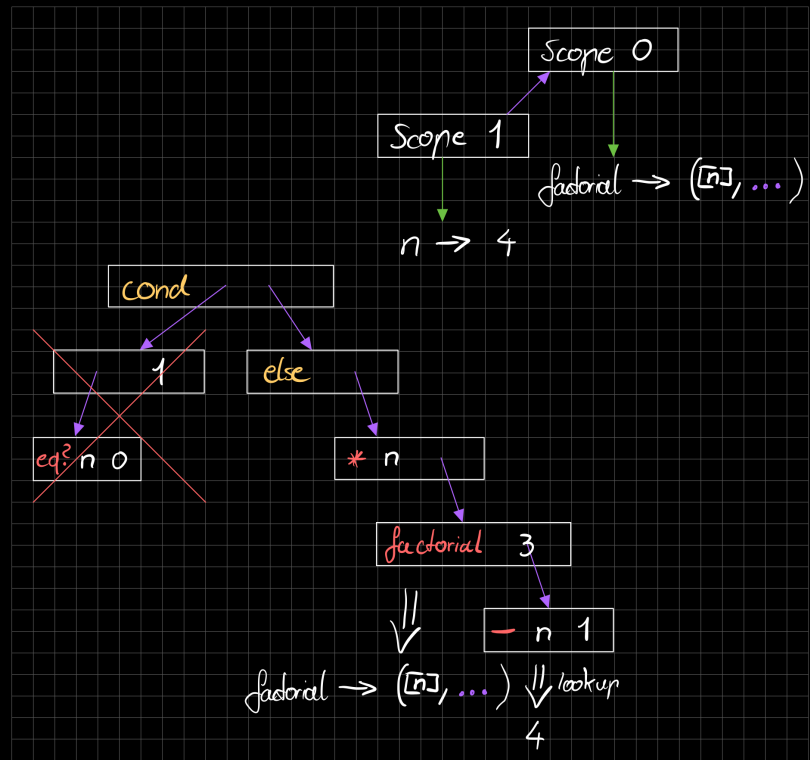 Scope 0
Scope 1
factorial → ([n], ...)
n → 4
cond
1
else
eq? n 0
* n
factorial 3
- n 1
factorial → ([n], ...)
lookup
4